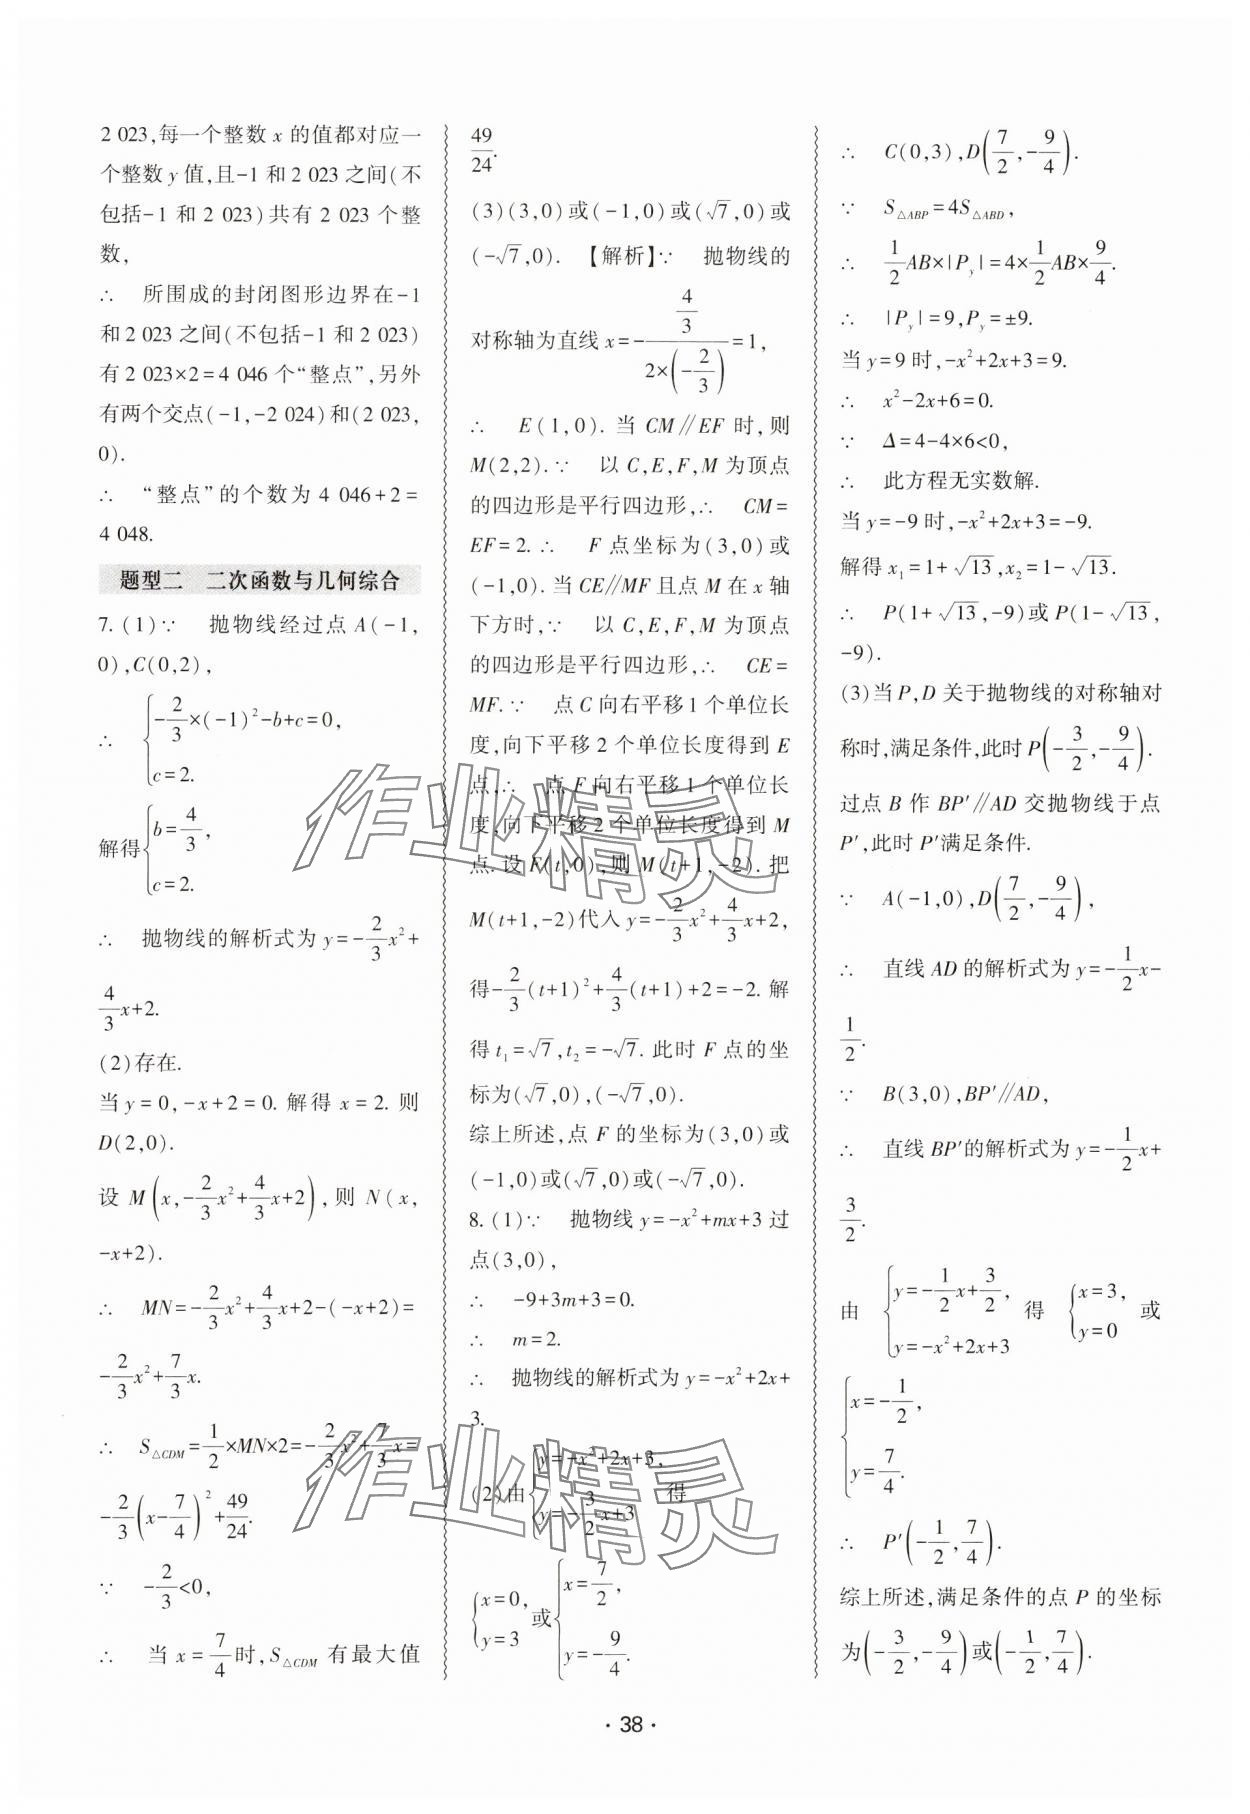 2 023,每一个整数 x 的值都对应一
个整数 y 值,且-1 和 2 023 之间(不
包括-1 和 2 023)共有 2 023 个整
数,
∴ 所围成的封闭图形边界在-1
和 2 023 之间(不包括-1 和 2 023)
有 2 023×2=4 046 个“整点”,另外
有两个交点(-1,-2 024)和(2 023,
0).
∴ “整点”的个数为 4 046+2=
4 048.
题型二 二次函数与几何综合
7. (1)∵ 抛物线经过点 A(-1,
0),C(0,2),
∴ {-2/3×(-1)²-b+c=0,
c=2.
解得{b=4/3,
c=2.
∴ 抛物线的解析式为 y=-2/3x²+
4/3x+2.
(2)存在.
当 y=0,-x+2=0. 解得 x=2. 则
D(2,0).
设 M(x,-2/3x²+4/3x+2),则 N(x,
-x+2).
∴ MN=-2/3x²+4/3x+2-(-x+2)=
-2/3x²+7/3x.
∴ S△CDM=1/2×MN×2=-2/3x²+7/3x=
-2/3(x-7/4)²+49/24.
∵ -2/3<0,
∴ 当 x=7/4时,S△CDM 有最大值
49/24.
(3)(3,0)或(-1,0)或(√7,0)或
(-√7,0). 【解析】∵ 抛物线的
对称轴为直线 x=-(4/3)/(2×(-2/3))=1,
∴ E(1,0). 当 CM∥EF 时,则
M(2,2).∵ 以 C,E,F,M 为顶点
的四边形是平行四边形,∴ CM=
EF=2.∴ F 点坐标为(3,0)或
(-1,0).当 CE∥MF 且点 M 在 x 轴
下方时,∵ 以 C,E,F,M 为顶点
的四边形是平行四边形,∴ CE=
MF.∵ 点 C 向右平移 1 个单位长
度,向下平移 2 个单位长度得到 E
点,∴ 点 F 向右平移 1 个单位长
度,向下平移 2 个单位长度得到 M
点.设 F(t,0),则 M(t+1,-2).把
M(t+1,-2)代入 y=-2/3x²+4/3x+2,
得-2/3(t+1)²+4/3(t+1)+2=-2. 解
得 t₁=√7,t₂=-√7. 此时 F 点的坐
标为(√7,0),(-√7,0).
综上所述,点 F 的坐标为(3,0)或
(-1,0)或(√7,0)或(-√7,0).
8. (1)∵ 抛物线 y=-x²+mx+3 过
点(3,0),
∴ -9+3m+3=0.
∴ m=2.
∴ 抛物线的解析式为 y=-x²+2x+
3.
(2)由{y=-x²+2x+3,
y=-3/2x+3 得
{x=0,
y=3 或{x=7/2,
y=-9/4.
∴ C(0,3),D(7/2,-9/4).
∵ S△ABP=4S△ABD,
∴ 1/2AB×|Py|=4×1/2AB×9/4.
∴ |Py|=9,Py=±9.
当 y=9 时,-x²+2x+3=9.
∴ x²-2x+6=0.
∵ Δ=4-4×6<0,
∴ 此方程无实数解.
当 y=-9 时,-x²+2x+3=-9.
解得 x₁=1+√13,x₂=1-√13.
∴ P(1+√13,-9)或 P(1-√13,
-9).
(3)当 P,D 关于抛物线的对称轴对
称时,满足条件,此时 P(-3/2,-9/4).
过点 B 作 BP′∥AD 交抛物线于点
P′,此时 P′满足条件.
∵ A(-1,0),D(7/2,-9/4),
∴ 直线 AD 的解析式为 y=-1/2x-
1/2.
∵ B(3,0),BP′∥AD,
∴ 直线 BP′的解析式为 y=-1/2x+
3/2.
由 {y=-1/2x+3/2,
y=-x²+2x+3 得 {x=3,
y=0 或
{x=-1/2,
y=7/4.
∴ P′(-1/2,7/4).
综上所述,满足条件的点 P 的坐标
为(-3/2,-9/4)或(-1/2,7/4).
· 38 ·
作业精灵
作业精灵